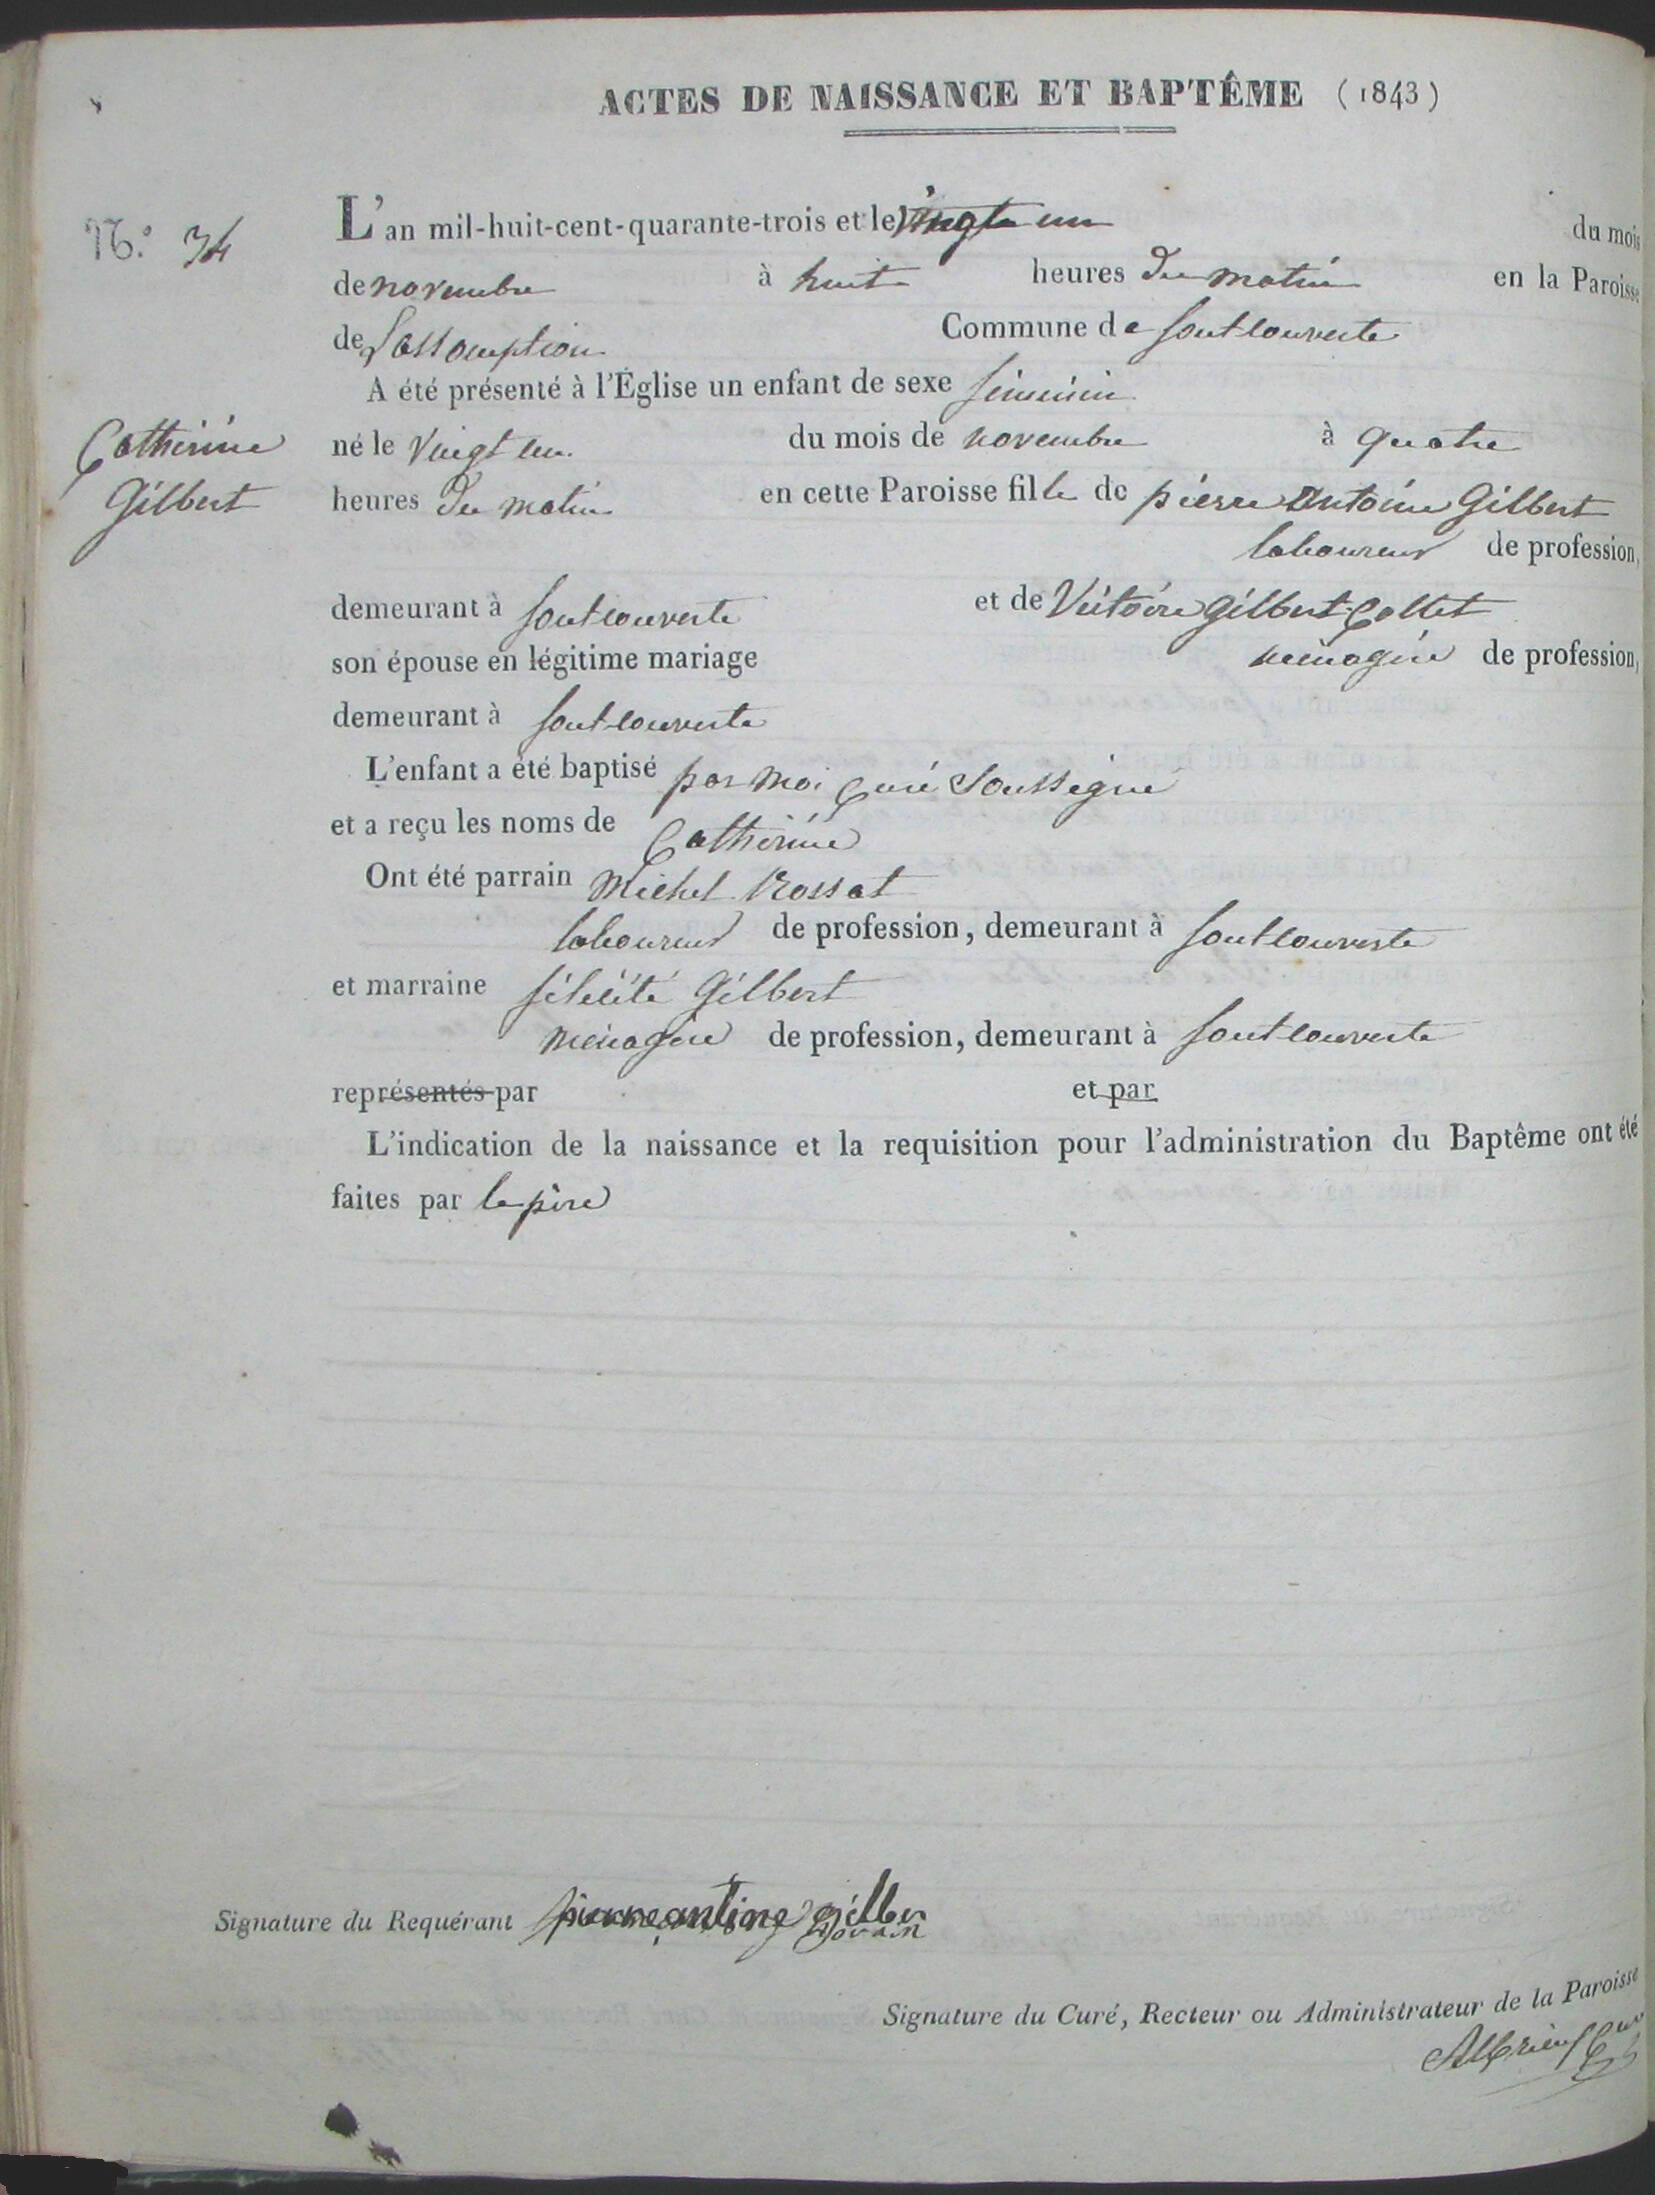 ACTES DE NAISSANCE ET BAPTÊME (1843)
N.° 34
L'an mil-huit-cent-quarante-trois et le vingt un du mois
de novembre à huit heures du matin en la Paroisse
de Lassomption Commune de fontcouverte
A été présenté à l'Église un enfant de sexe féminin
Catherine
Gilbert
né le vingt un du mois de novembre à quatre
heures du matin en cette Paroisse fille de pierre Antoine Gilbert
laboureur de profession,
demeurant à fontcouverte et de Victoire Gilbert-Collet
son épouse en légitime mariage ménagère de profession,
demeurant à fontcouverte
L'enfant a été baptisé par moi Curé Soussigné
et a reçu les noms de Catherine
Ont été parrain Michel Rossat
laboureur de profession, demeurant à fontcouverte
et marraine félicité Gilbert
ménagère de profession, demeurant à fontcouverte
représentés par et par
L'indication de la naissance et la requisition pour l'administration du Baptême ont été
faites par le père
Signature du Requérant pierre antine gilber
Signature du Curé, Recteur ou Administrateur de la Paroisse